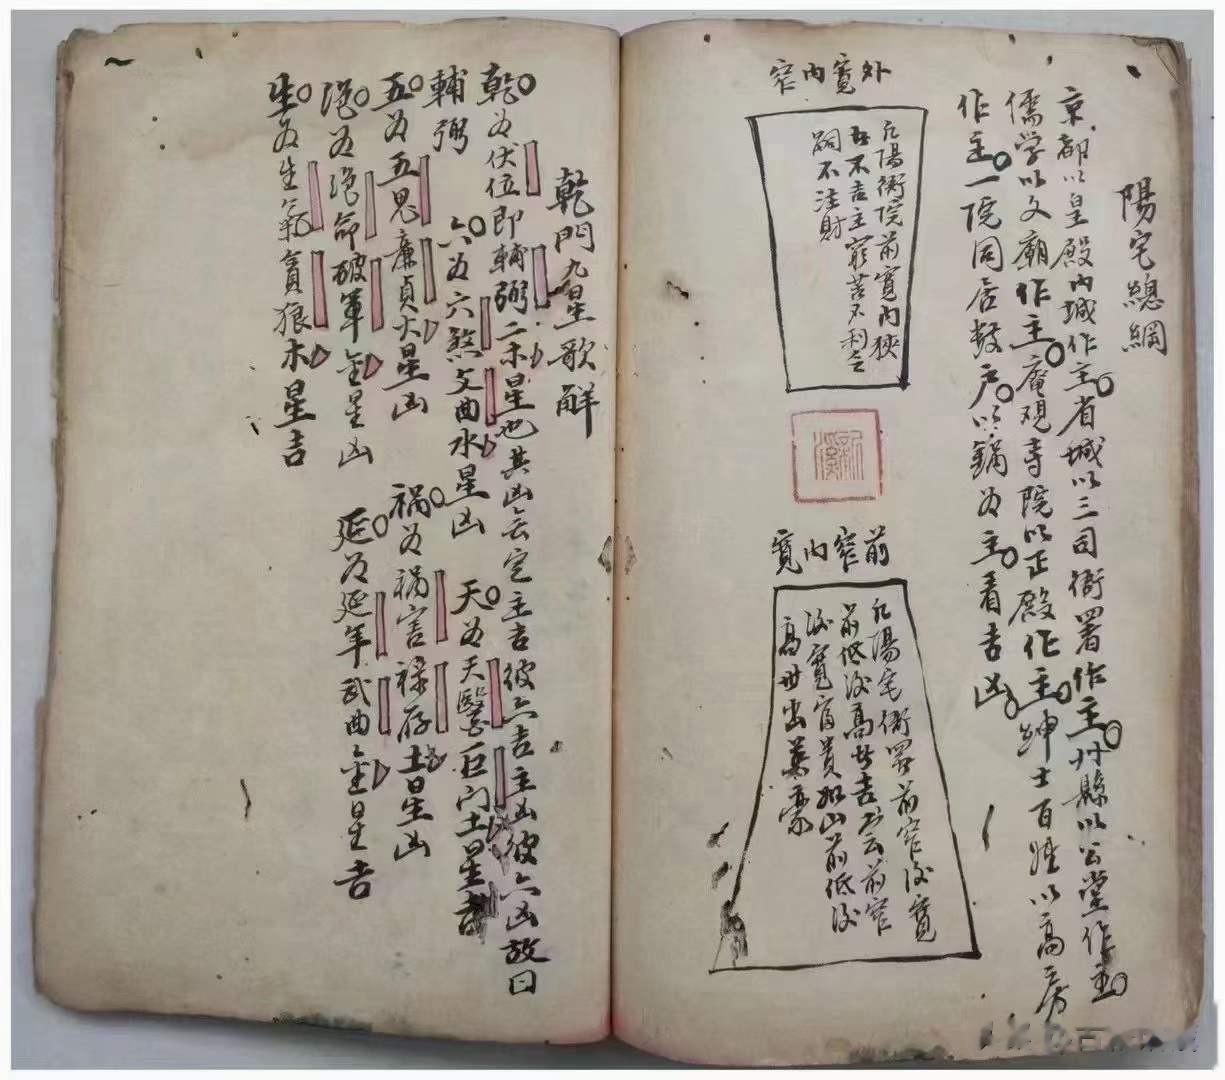 陽宅總綱
京都以皇殿內城作主省城以三司衙署作主州縣以公堂作主
儒学以文廟作主庵观寺院以正殿作主紳士百姓以高房
作主一院同居数户以鍋为主看吉凶
外寬內窄
凡陽衙院前寬內狹
不吉主窮苦不利
嗣不注財
前窄內寬
凡陽宅衙署前窄後寬
前低後高皆吉云前窄
後寬富貴如山前低後
高世出英豪
乾門九星歌解
乾为伏位即輔弼二木星也其凶無定主吉彼六吉主凶彼六凶故曰
輔弼
六为六煞文曲水星凶
天为天醫巨门土星吉
五为五鬼廉貞火星凶
禍为禍害禄存土星凶
绝为绝命破軍金星凶
延为延年武曲金星吉
生为生氣貪狼木星吉